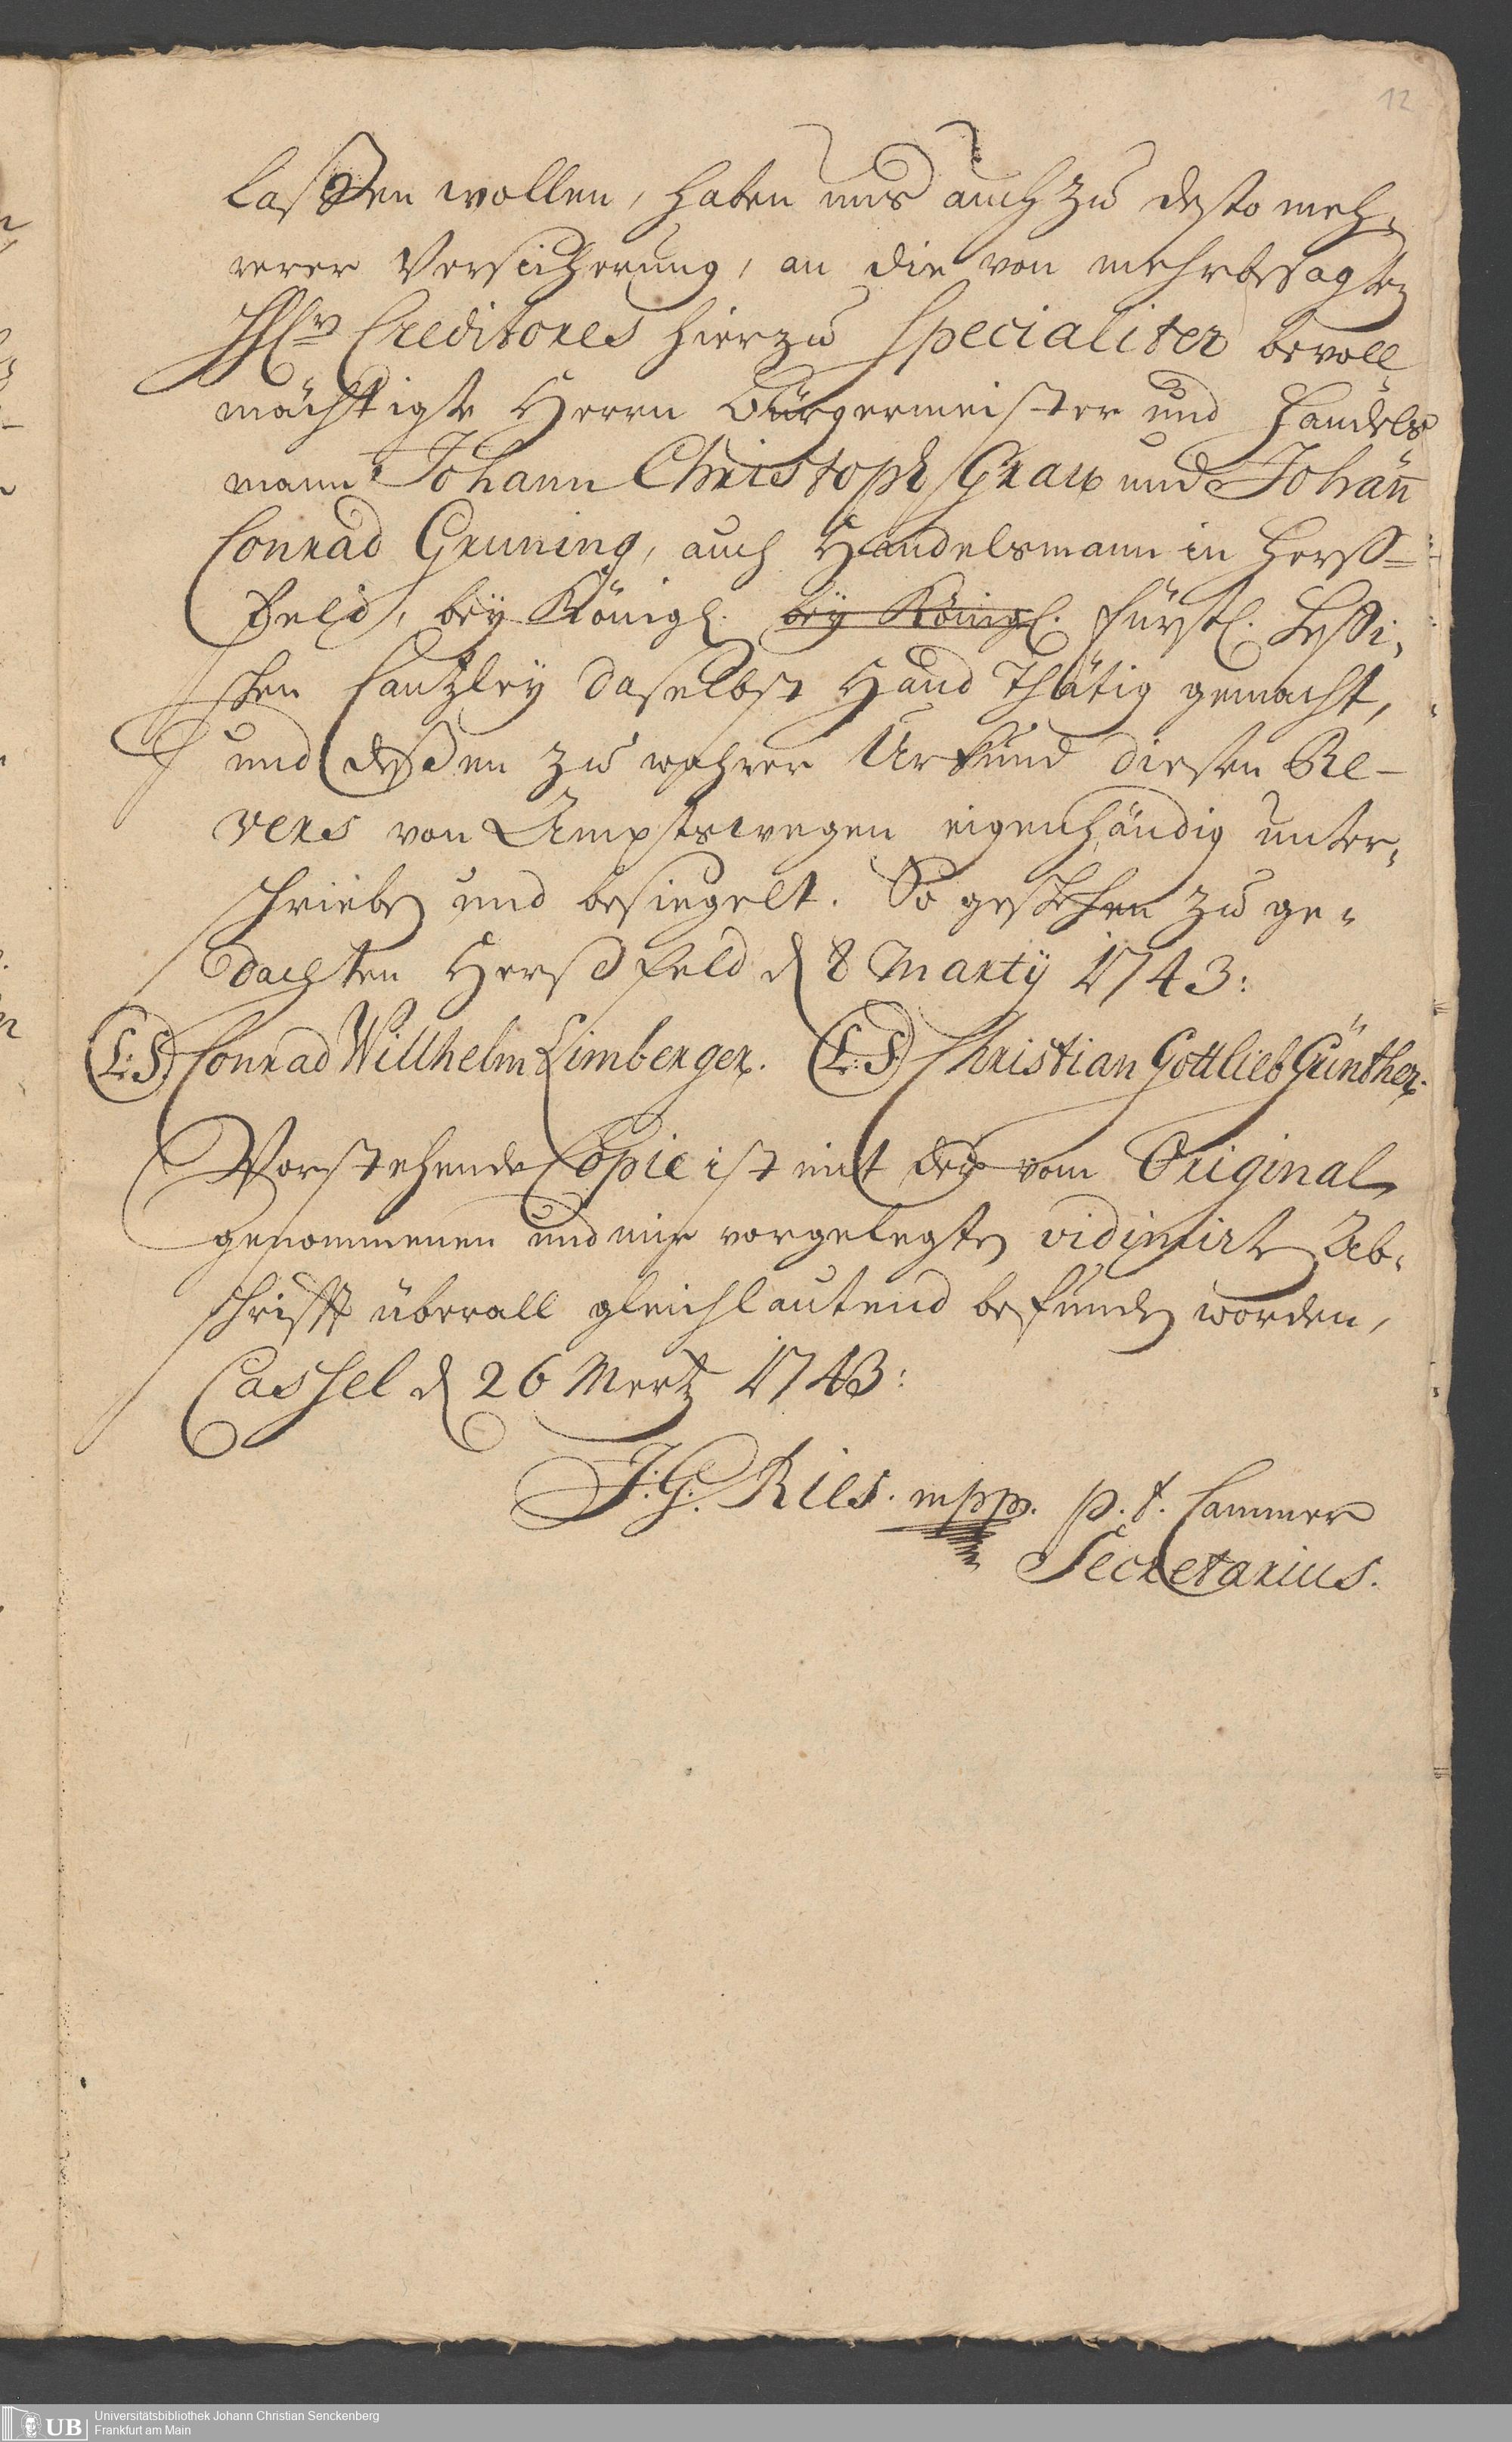 12
laßen wollen, haben uns auch zu desto meh-
rerer Versicherung, an die von mehrbesagten
HHr Creditores hierzu specialiter bevoll
mächtigte Herrn Bürgermeister und Handels
mann Johann Christoph Grau und Johañ
Conrad Gruning, auch Handelsmann in Herß=
feld, bey Königl. bey Königl. Fürstl. Heßi,
schen Cantzley daselbst Hand Thätig gemacht,
und deßen zu wahrer Urkund diesen Re-
vers von Amptswegen eigenhändig unter,
schrieben und besiegelt. So geschehen zu ge,
dachten Herßfeld d 8 Martij 1743:
(L:S) Conrad Willhelm Limberger. (L:S) Christian Gottlieb Günther.
Vorstehende Copie ist mit der vom Original
genommenen und mir vorgelegten vidimirten Ab,
schrifft überall gleichlautend befunden worden,
Cassel d 26 Mertz 1743:
J:G: Ries. mpp. p. t. Cammer
Secretarius.
UB Universitätsbibliothek Johann Christian Senckenberg
Frankfurt am Main